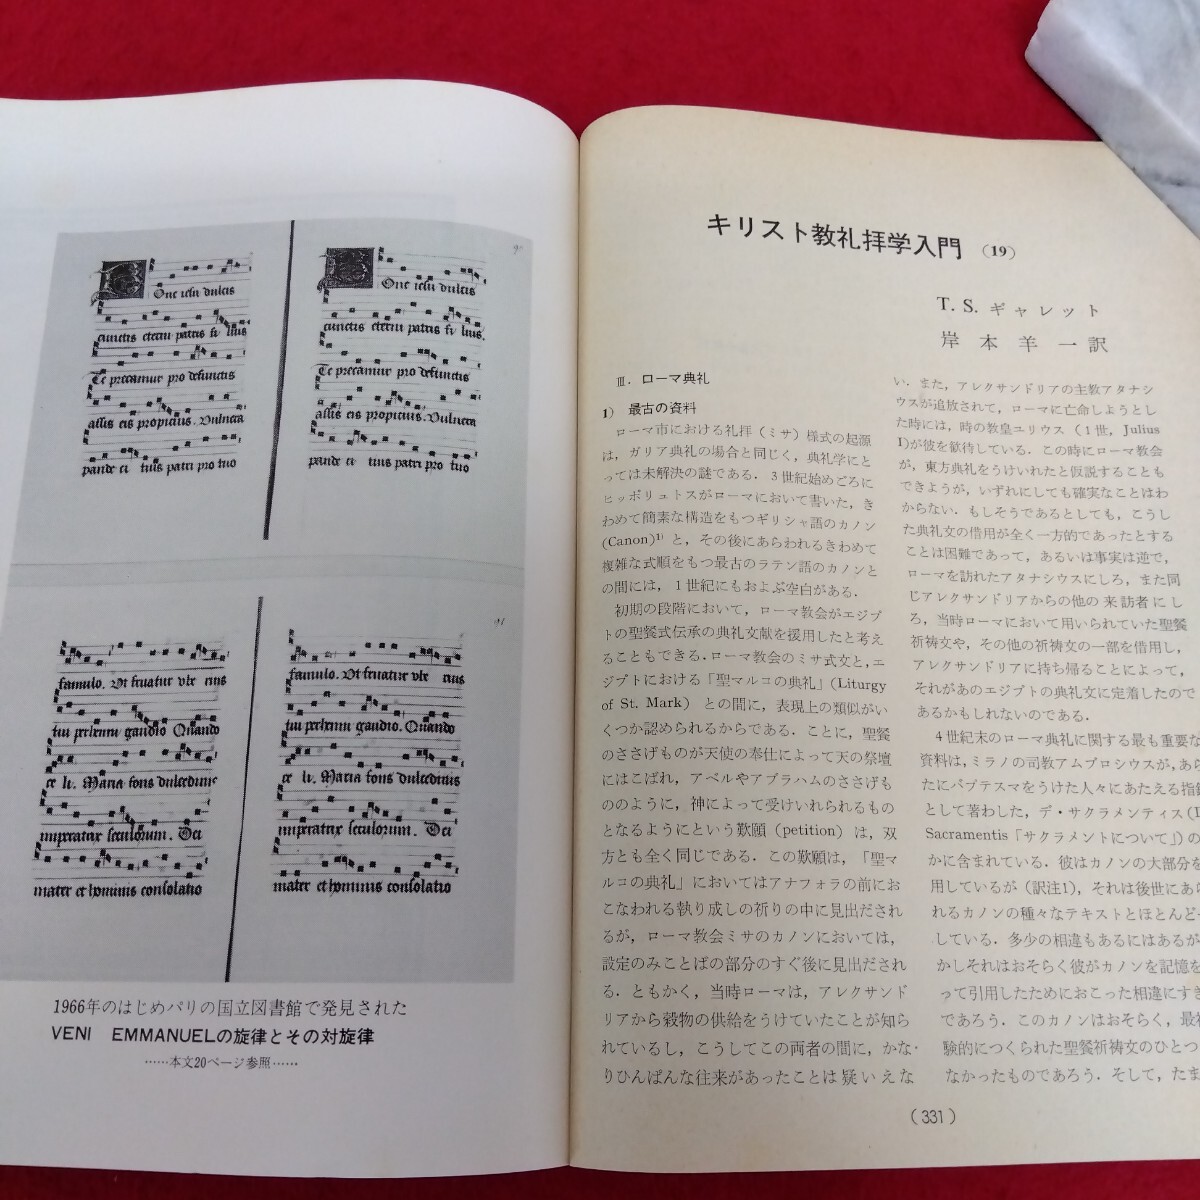 One iesu dulcis
cunctis eterni patris fi lius
Te precamur pro defunctis
assis eis propicius. Vulnera
pande ci tuis patri pro tuo
One iesu dulcis
cunctis eterni patris fi lius.
Te precamur pro defunctis
assis eis propicius. Vulnera
pande ci tuis patri pro tuo
famulo. Ut
tui perhenni gaudio. Quando
ce li. Maria fons dulcedinis
imperatrix seculorum. Dei
mater et hominis consolatio
famulo. Ut
tui perhenni gaudio. Quando
ce li. Maria fons dulcedinis
imperatrix seculorum. Dei
mater et hominis consolatio
1966年のはじめパリの国立図書館で発見された
VENI EMMANUELの旋律とその対旋律
……本文20ページ参照……
キリスト教礼拝学入門 (19)
T. S. ギャレット
岸本羊一訳
Ⅲ. ローマ典礼
1) 最古の資料
ローマ市における礼拝（ミサ）様式の起源
は，ガリア典礼の場合と同じく，典礼学にと
っては未解決の謎である．3世紀始めごろに
ヒッポリュトスがローマにおいて書いた，き
わめて簡素な構造をもつギリシャ語のカノン
(Canon)¹⁾ と，その後にあらわれるきわめて
複雑な式順をもつ最古のラテン語のカノンと
の間には，1世紀にもおよぶ空白がある．
初期の段階において，ローマ教会がエジプ
トの聖餐式伝承の典礼文献を援用したと考え
ることもできる．ローマ教会のミサ式文と，エ
ジプトにおける「聖マルコの典礼」(Liturgy
of St. Mark) との間に，表現上の類似がい
くつか認められるからである．ことに，聖餐
のささげものが天使の奉仕によって天の祭壇
にはこばれ，アベルやアブラハムのささげも
ののように，神によって受けいれられるもの
となるようにという歎願 (petition) は，双
方とも全く同じである．この歎願は，「聖マ
ルコの典礼」においてはアナフォラの前にお
こなわれる執り成しの祈りの中に見出だされ
るが，ローマ教会ミサのカノンにおいては，
設定のみことばの部分のすぐ後に見出だされ
る．ともかく，当時ローマは，アレクサンド
リアから穀物の供給をうけていたことが知ら
れているし，こうしてこの両者の間に，かな
りひんぱんな往来があったことは疑いえな
い．また，アレクサンドリアの主教アタナシ
ウスが追放されて，ローマに亡命しようとし
た時には，時の教皇ユリウス（1世，Julius
I)が彼を歓待している．この時にローマ教会
が，東方典礼をうけいれたと仮説することも
できようが，いずれにしても確実なことはわ
からない．もしそうであるとしても，こうし
た典礼文の借用が全く一方的であったとする
ことは困難であって，あるいは事実は逆で，
ローマを訪れたアタナシウスにしろ，また同
じアレクサンドリアからの他の来訪者にし
ろ，当時ローマにおいて用いられていた聖餐
祈祷文や，その他の祈祷文の一部を借用し，
アレクサンドリアに持ち帰ることによって，
それがあのエジプトの典礼文に定着したので
あるかもしれないのである．
4世紀末のローマ典礼に関する最も重要な
資料は，ミラノの司教アムブロシウスが，あら
たにバプテスマをうけた人々にあたえる指針
として著わした，デ・サクラメンティス(
Sacramentis「サクラメントについて」)の
かに含まれている．彼はカノンの大部分を
用しているが（訳注1)，それは後世にあら
れるカノンの種々なテキストとほとんど
している．多少の相違もあるにはあるが
かしそれはおそらく彼がカノンを記憶を
って引用したためにおこった相違にすぎ
であろう．このカノンはおそらく，最初
験的につくられた聖餐祈祷文のひとつ
なかったものであろう．そして，たま
(331)